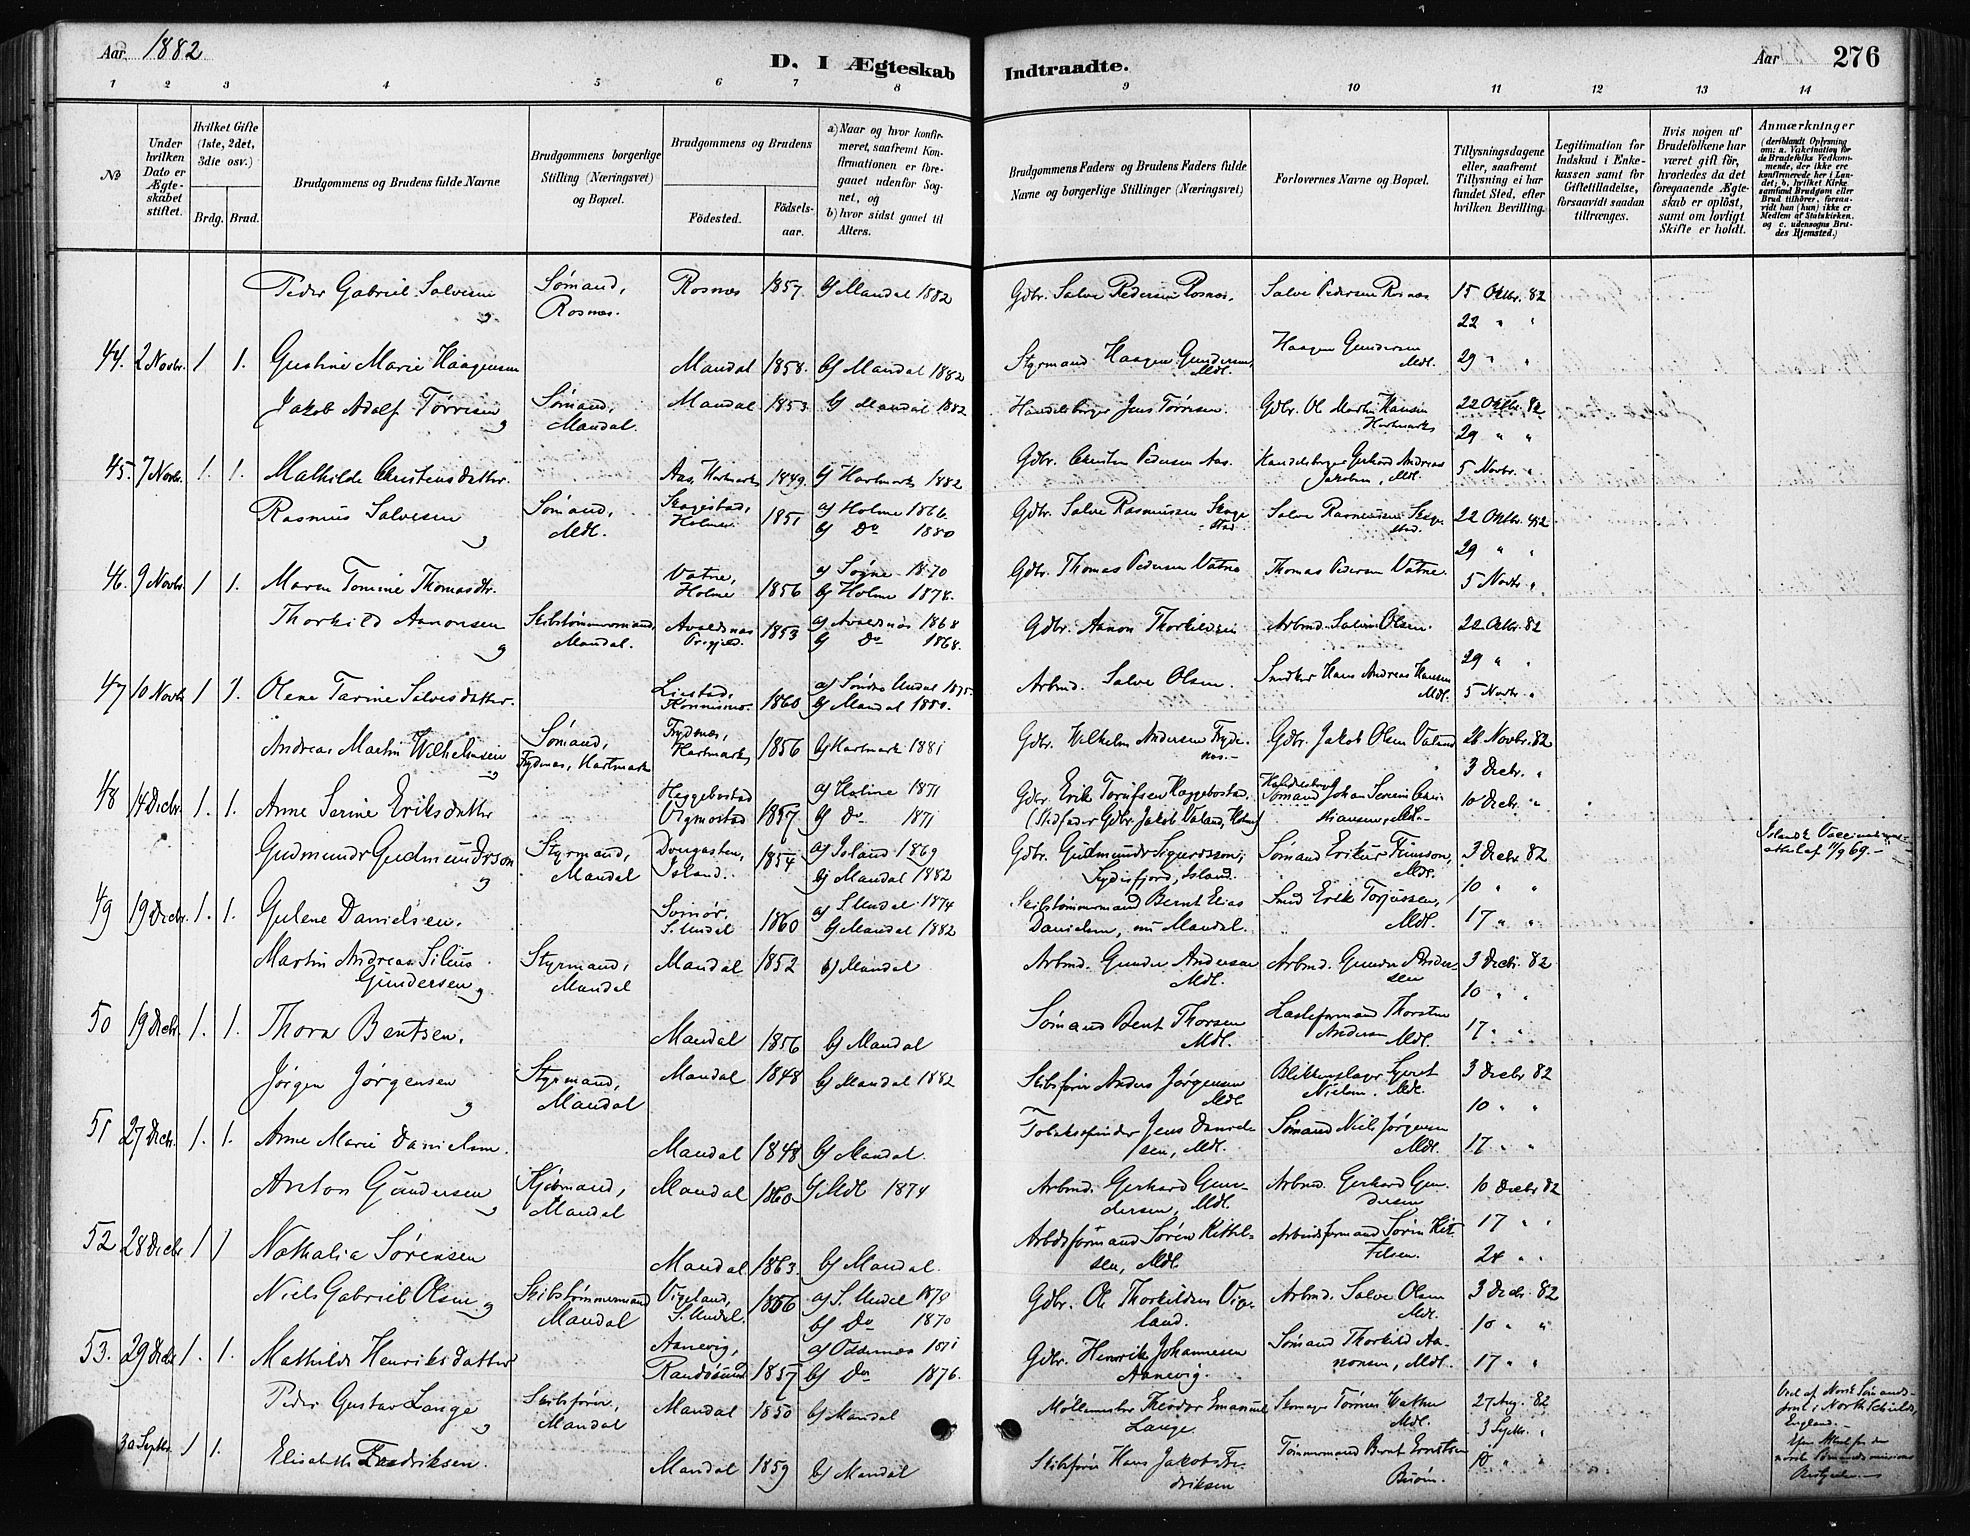 Aar 1882
D. I Ægteskab Indtraadte.
Aar 276
1 2 3 4 5 6 7 8 9 10 11 12 13 14
№
Under hvilken Dato er Ægteskabet stiftet.
Hvilket Gifte (1ste, 2det, 3die osv.)
Brdg. Brud.
Brudgommens og Brudens fulde Navne
Brudgommens borgerlige Stilling (Næringsvei) og Bopæl.
Brudgommens og Brudens
Födested. Födsels-aar.
a) Naar og hvor konfirmeret, saafremt Konfirmationen er foregaaet udenfor Sognet, og
b) hvor sidst gaaet til Alters.
Brudgommens Faders og Brudens Faders fulde Navne og borgerlige Stillinger (Næringsvei)
Forlovernes Navne og Bopæl.
Tillysningsdagene eller, saafremt Tillysning ei har fundet Sted, efter hvilken Bevilling.
Legitimation for Indskud i Enkekassen samt for Giftetilladelse, forsaavidt saadan tiltrænges.
Hvis nogen af Brudefolkene har været gift för, hvorledes da det foregaaende Ægteskab er oplöst, samt om lovligt Skifte er holdt.
Anmærkninger (deriblandt Oplysning om: a. Vakcination for de Brudefolks Vedkommende, der ikke ere konfirmerede her i Landet; b. hvilket Kirkesamfund Brudgom eller Brud tilhörer, forsaavidt han (hun) ikke er Medlem af Statskirken, og c. udensogns Brudes Hjemsted.)
Peder Gabriel Salvesen og Sømand, Rosnes. Rosnæs 1857. b) Mandal 1882 Gdbr. Salve Pedersen Rosnæs. Salve Pedersen Rosnæs 15 Oktbr. 82
22 " "
44. 2 Novbr. 1 1. Gustine Marie Haagensen Mandal 1858. b) Mandal 1882 Styrmand Haagen Gundersen, Mdl. Haagen Gundersen Mdl. 29 " "
Jakob Adolf Tørresen og Sømand, Mandal. Mandal 1853 b) Mandal 1882 Handelsborger Jens Tørresen. Gdbr. Ol Martin Hansen Hartmark 22 Oktbr. 82
29 " "
45. 7 Novbr. 1. 1. Mathilde Christensdatter. Aas, Hartmark 1849. b) Hartmark 1882 Gdbr. Christen Pedersen Aas. Handelsborger Gerhard Andreas Jakobsen, Mdl. 5 Novbr. "
Rasmus Salvesen og Sømand, Mdl. Skogestad, Holme 1851 a) Holme 1866 b) Do 1880 Gdbr. Salve Rasmussen Skogestad Salve Rasmussen Skogestad. 22 Oktbr.
29 " "
46. 9 Novbr. 1 1. Maren Tomine Thomasdtr. Vatne, Holme 1856 a) Søgne 1870 b) Holme 1878. Gdbr. Thomas Pedersen Vatne Thomas Pedersen Vatne. 5 Novbr. "
Thorkild Aanonsen og Skibstømmermand, Mandal. Avaldsnæs Prgjeld. 1853 a) Avaldsnæs 1868 b) Do 1868. Gdbr. Aanon Thorkildsen Arbmd. Salve Olsen. 22 Oktbr. 82
29 " "
47 10 Novbr. 1 1. Olene Tarine Salvesdatter. 1860 a) Søndre Undal 1875 b) Mandal 1880. Arbmd. Salve Olsen. Snedker Hans Andreas Hansen Mdl. 5 Novbr. "
Andreas Martin Wilhelmsen og Sømand, Frydnæs, Hartmark Frydnæs, Hartmark 1856 b) Hartmark 1881 Gdbr. Wilhelm Andersen Frydenæs.- Gdbr. Jakob Olsen Valand 26 Novbr. 82
3 Decbr. "
48 14 Decbr. 1. 1. Anne Serine Eriksdatter Heggebostad Vigmostad 1857 a) Holme 1871 b) Do 1871 Gdbr. Erik Torgilsen Heggebostad. (Stedfader Gdbr. Jakob Valand, Holme) Sømand Johan Severin Christiansen, Mdl.- 10 Decbr. "
Gudmundr Gudmundrson og Styrmand, Mandal Island. 1854 a) Island 1869 b) Mandal 1882 Gdbr. Gudmundr Sigurdsson, Sydisfjord, Island. Sømand Erikur Finnson, Mdl. 3 Decbr. 82
10 " "
Islandsk Vaccinationsattest af 11/9 69.-
49 19 Decbr. 1. 1. Gulene Danielsen. Somør, S. Undal 1860 a) S. Undal 1874 b) Mandal 1882 Skibstømmermand Bernt Elias Danielsen, nu Mandal. Smed Erik Torjussen, Mdl. 17 " "
Martin Andreas Silius Gundersen og Styrmand, Mandal Mandal 1852 b) Mandal Arbmd. Gunder Andersen Mdl. Arbmd. Gunder Andersen 3 Decbr. 82
10 " "
50 19 Decbr. 1. 1. Thora Bentsen. Mandal 1856 b) Mandal Sømand Bent Thorsen Mdl. Losseformand Thorsten Andersen Mdl. 17 " "
Jørgen Jørgensen og Styrmand, Mandal Mandal 1848 b) Mandal 1882 Skibsfører Anders Jørgensen Mdl. Blikkenslager Syvert Nielsen, Mdl. 3 Decbr. 82
10 " "
51 27 Decbr. 1. 1. Anne Marie Danielsen. Mandal 1848 b) Mandal. Tobaksspinder Jens Danielsen, Mdl. Sømand Niels Jørgensen Mdl. 17 " "
Anton Gundersen og Kjøbmand, Mandal Mandal 1860 b) Mdl 1874 Arbmd. Gerhard Gundersen, Mdl. Arbmd. Gerhard Gundersen 10 Decbr 82
17 " "
52 28 Decbr. 1 1 Nathalia Sørensen Mandal 1863. b) Mandal. Arbdsformand Søren Kittelsen, Mdl. Arbeidsformand Søren Kittelsen. 24 " "
Niels Gabriel Olsen og Skibstømmermand Mandal Vigeland, S. Undal. 1856 a) S. Undal 1870 b) Do 1870 Gdbr. Ole Thorkildsen Vigeland. Arbmd. Salve Olsen Mdl. 3 Decbr. 82
10 " "
53. 29 Decbr. 1. 1. Mathilde Henriksdatter Aanevig, Randøsund 1857 a) Oddernæs 1871 b) Do 1876. Gdbr. Henrik Johannesen Aanevig. Sømand Thorkild Aanonsen, Mdl. 17 " "
Peder Gustav Lange og Skibsfører, Mandal Mandal 1850 b) Mandal Møllemester Theodor Emanuel Lange. Tørres Mdl. 27 Aug. 82
3 Septbr. "
30 Septbr. 1 1. Elisabeth Fredriksen. Mandal 1859 b) Mandal Skibsfører Hans Jakob Fredriksen Tømmermand Bernt Erntsen 10 " "
Viet af Norsk Sømandspræst i North Schields, England.-
Efter Attest fra den norske Sømandsmissions Bestyrelse.-